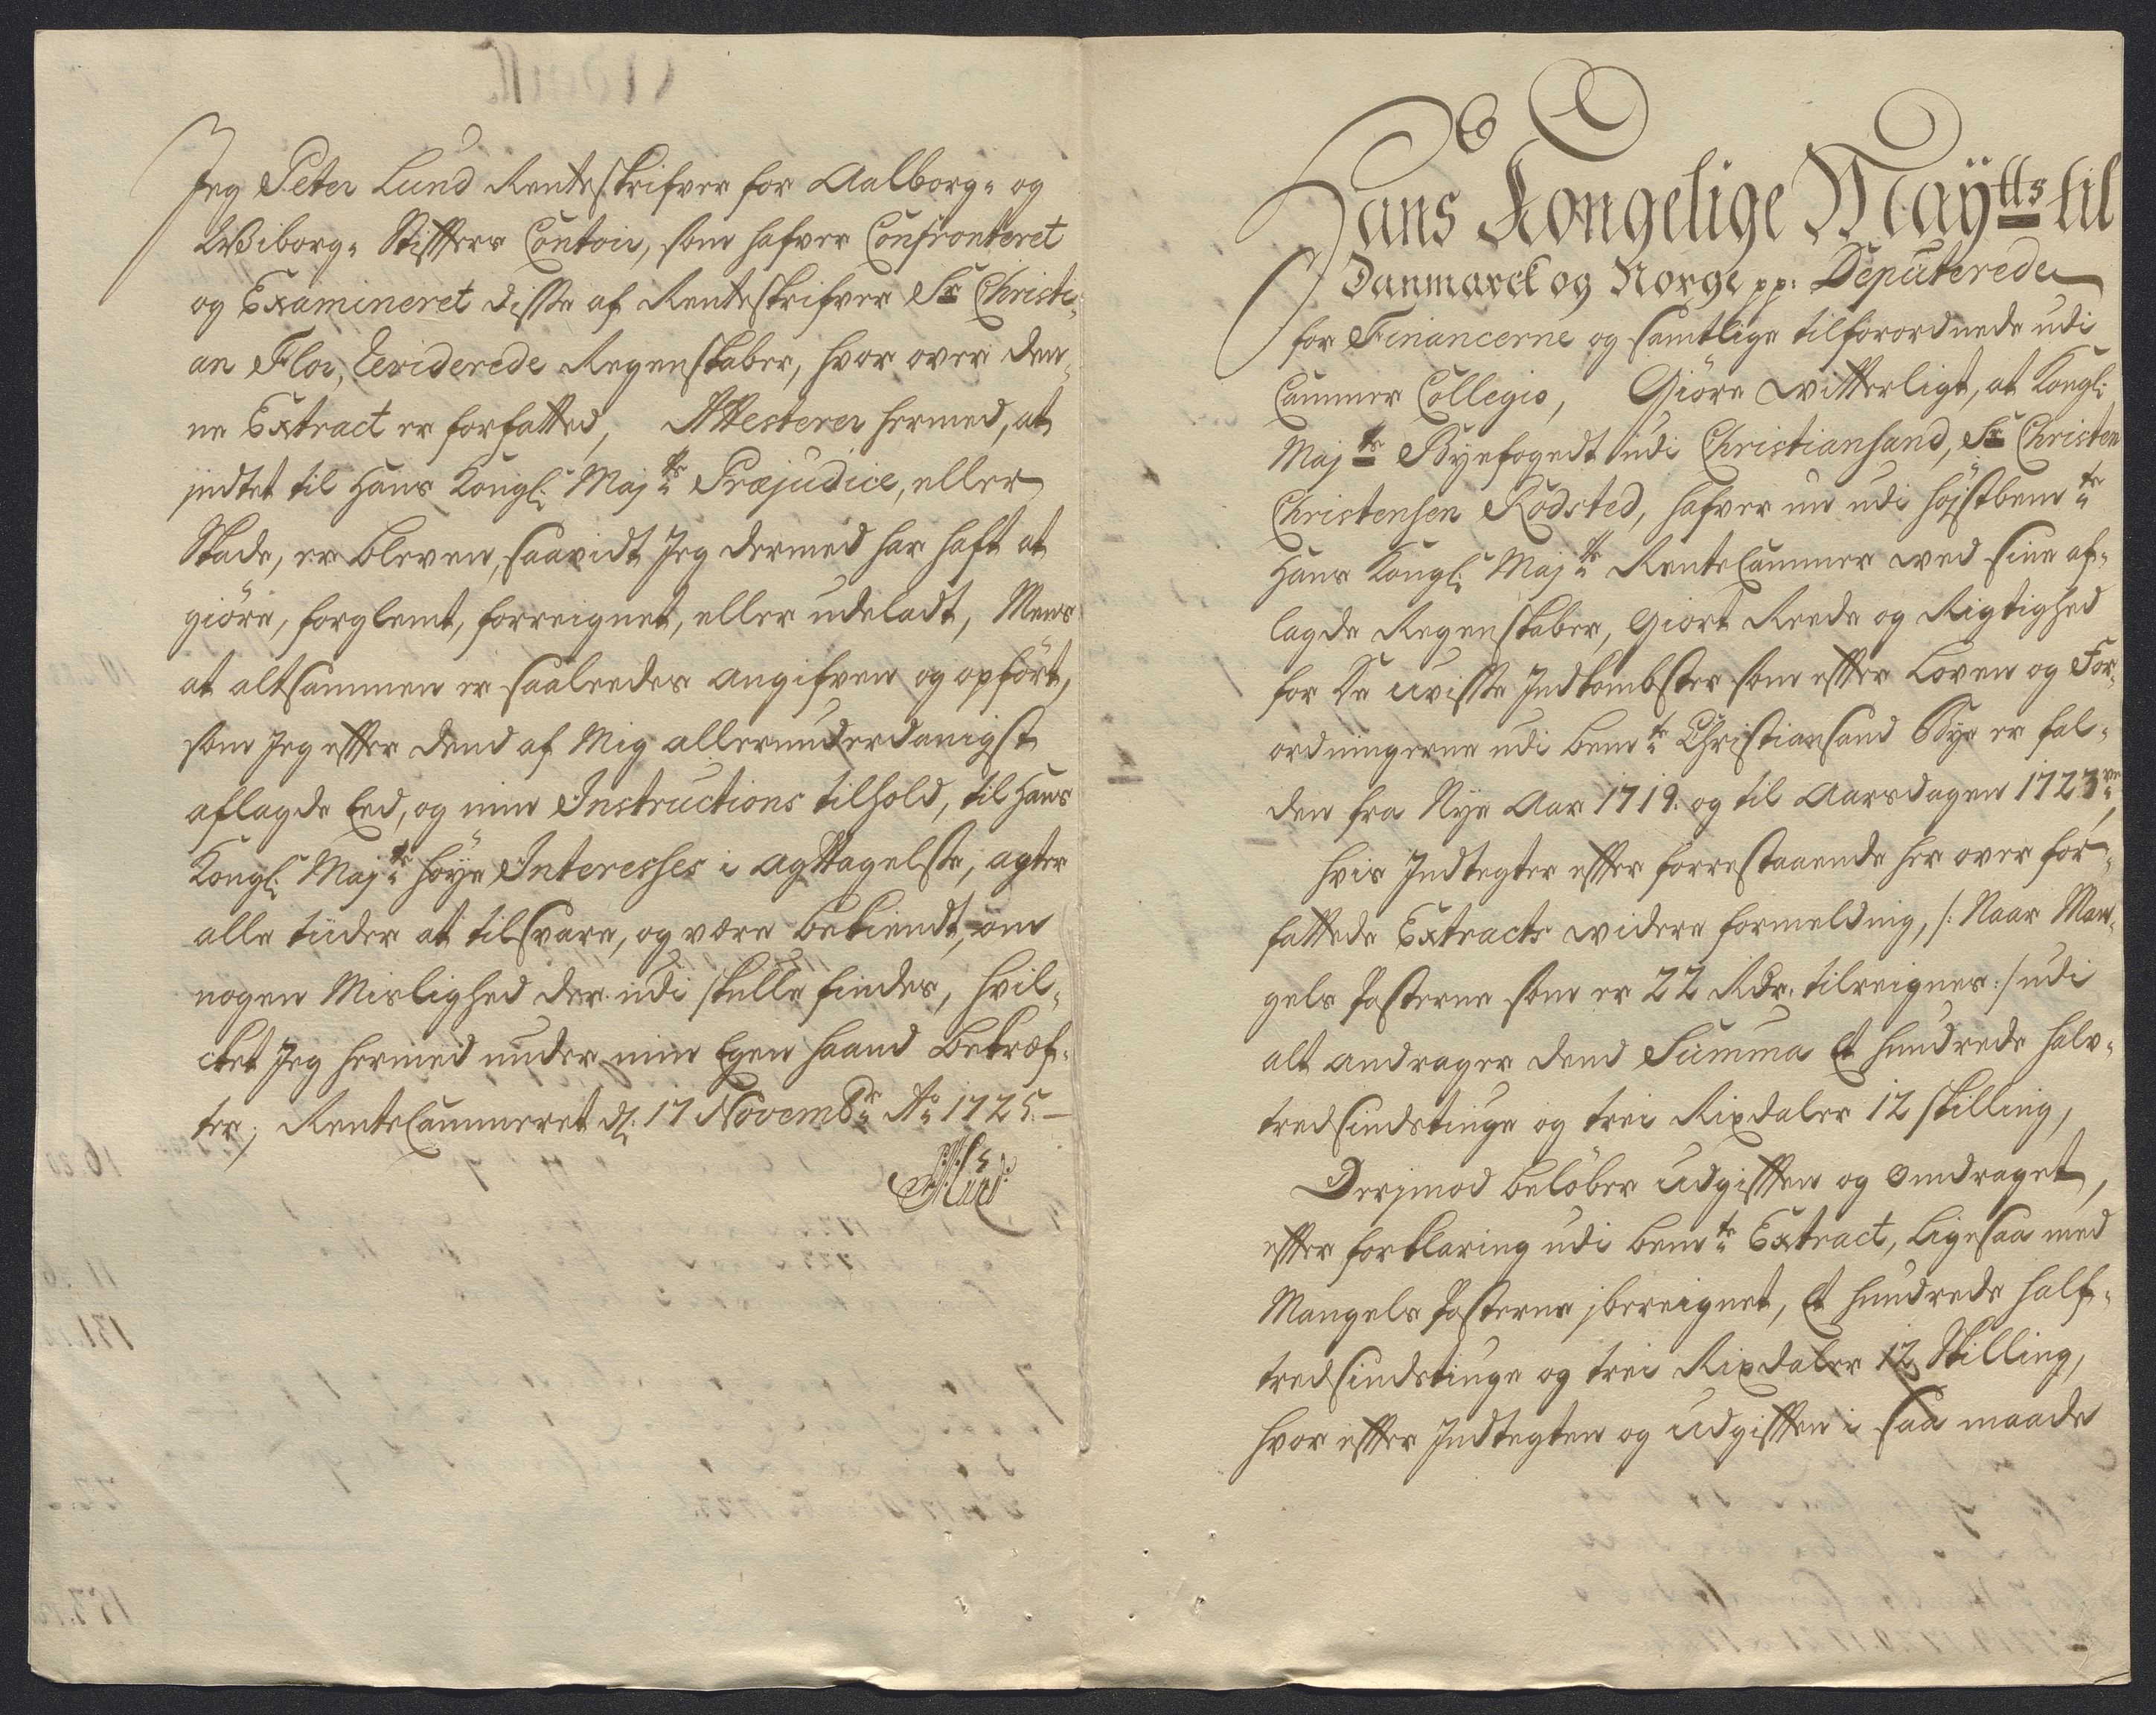 Jeg Peter Lund Renteskrifver for Aalborg- og
Wiborg- Stifters Contoir, som hafver Confronteret
og Examineret disse af Renteskrifver Sr Christi-
an Flor, Reviderede Regenskaber, hvor over den-
ne Extract er forfatted, Attesterer hermed, at
jndtet til Hans Kongl: Majts Præjudice, eller
Skade, er bleven, saavidt Jeg dermed har haft at
giöre, forglemt, forreignet, eller udeladt, Mens
at altsammen er saaleedes angifven og opfört,
som Jeg effter dend af Mig allerunderdanigst
aflagde Eed, og min Instructions tilhold, til Hans
Kongl: Majts höye Interesses i agttagelse, agter
alle tiider at tilsvare, og være bekiendt, om
nogen Mislighed der udi skulle findes, hvil-
cket Jeg hermed under min Egen haand bekræf-
ter, RenteCammeret d: 17 Novembr Ao 1725.
P Lund
Hans Kongelige Maÿtts til
Danmarck og Norge pp: Deputerede
for Financerne og samtlige tilforordnede udi
Cammer Collegio, Giöre witterligt, at Kongl:
Majts Byefogedt udi Christiansand, Sr Christen
Christensen Rodsted, hafver nu udi höjstbemte
Hans Kongl: Majts RenteCammer wed sine af-
lagde Regenskaber, Giort Reede og Rigtighed
for De uvisse Jndkombster som effter Loven og For-
ordningerne udi bemte Christiansand Bye er fal-
den fra Nye Aar 1719. og til Aarsdagen 1723de,
hvis Jndtegter effter forrestaaende her over for-
fattede Extracts widere formelding, /: Naar Man-
gels Posterne som er 22 Rdr. tilreignes :/ udi
alt andrager dend Summa Et hundrede halv-
tredsindstiuge og trei Rixdaler 12 skilling,
Derjmod belöber Udgifften og Omdraget,
effter forklaring udi bemte Extract, ligesaa med
Mangels Posterne jbereignet, Et hundrede half-
tredsindstiuge og trei Rixdaler 12 Skilling,
hvor effter Jndtegten og Udgifften i saa maade